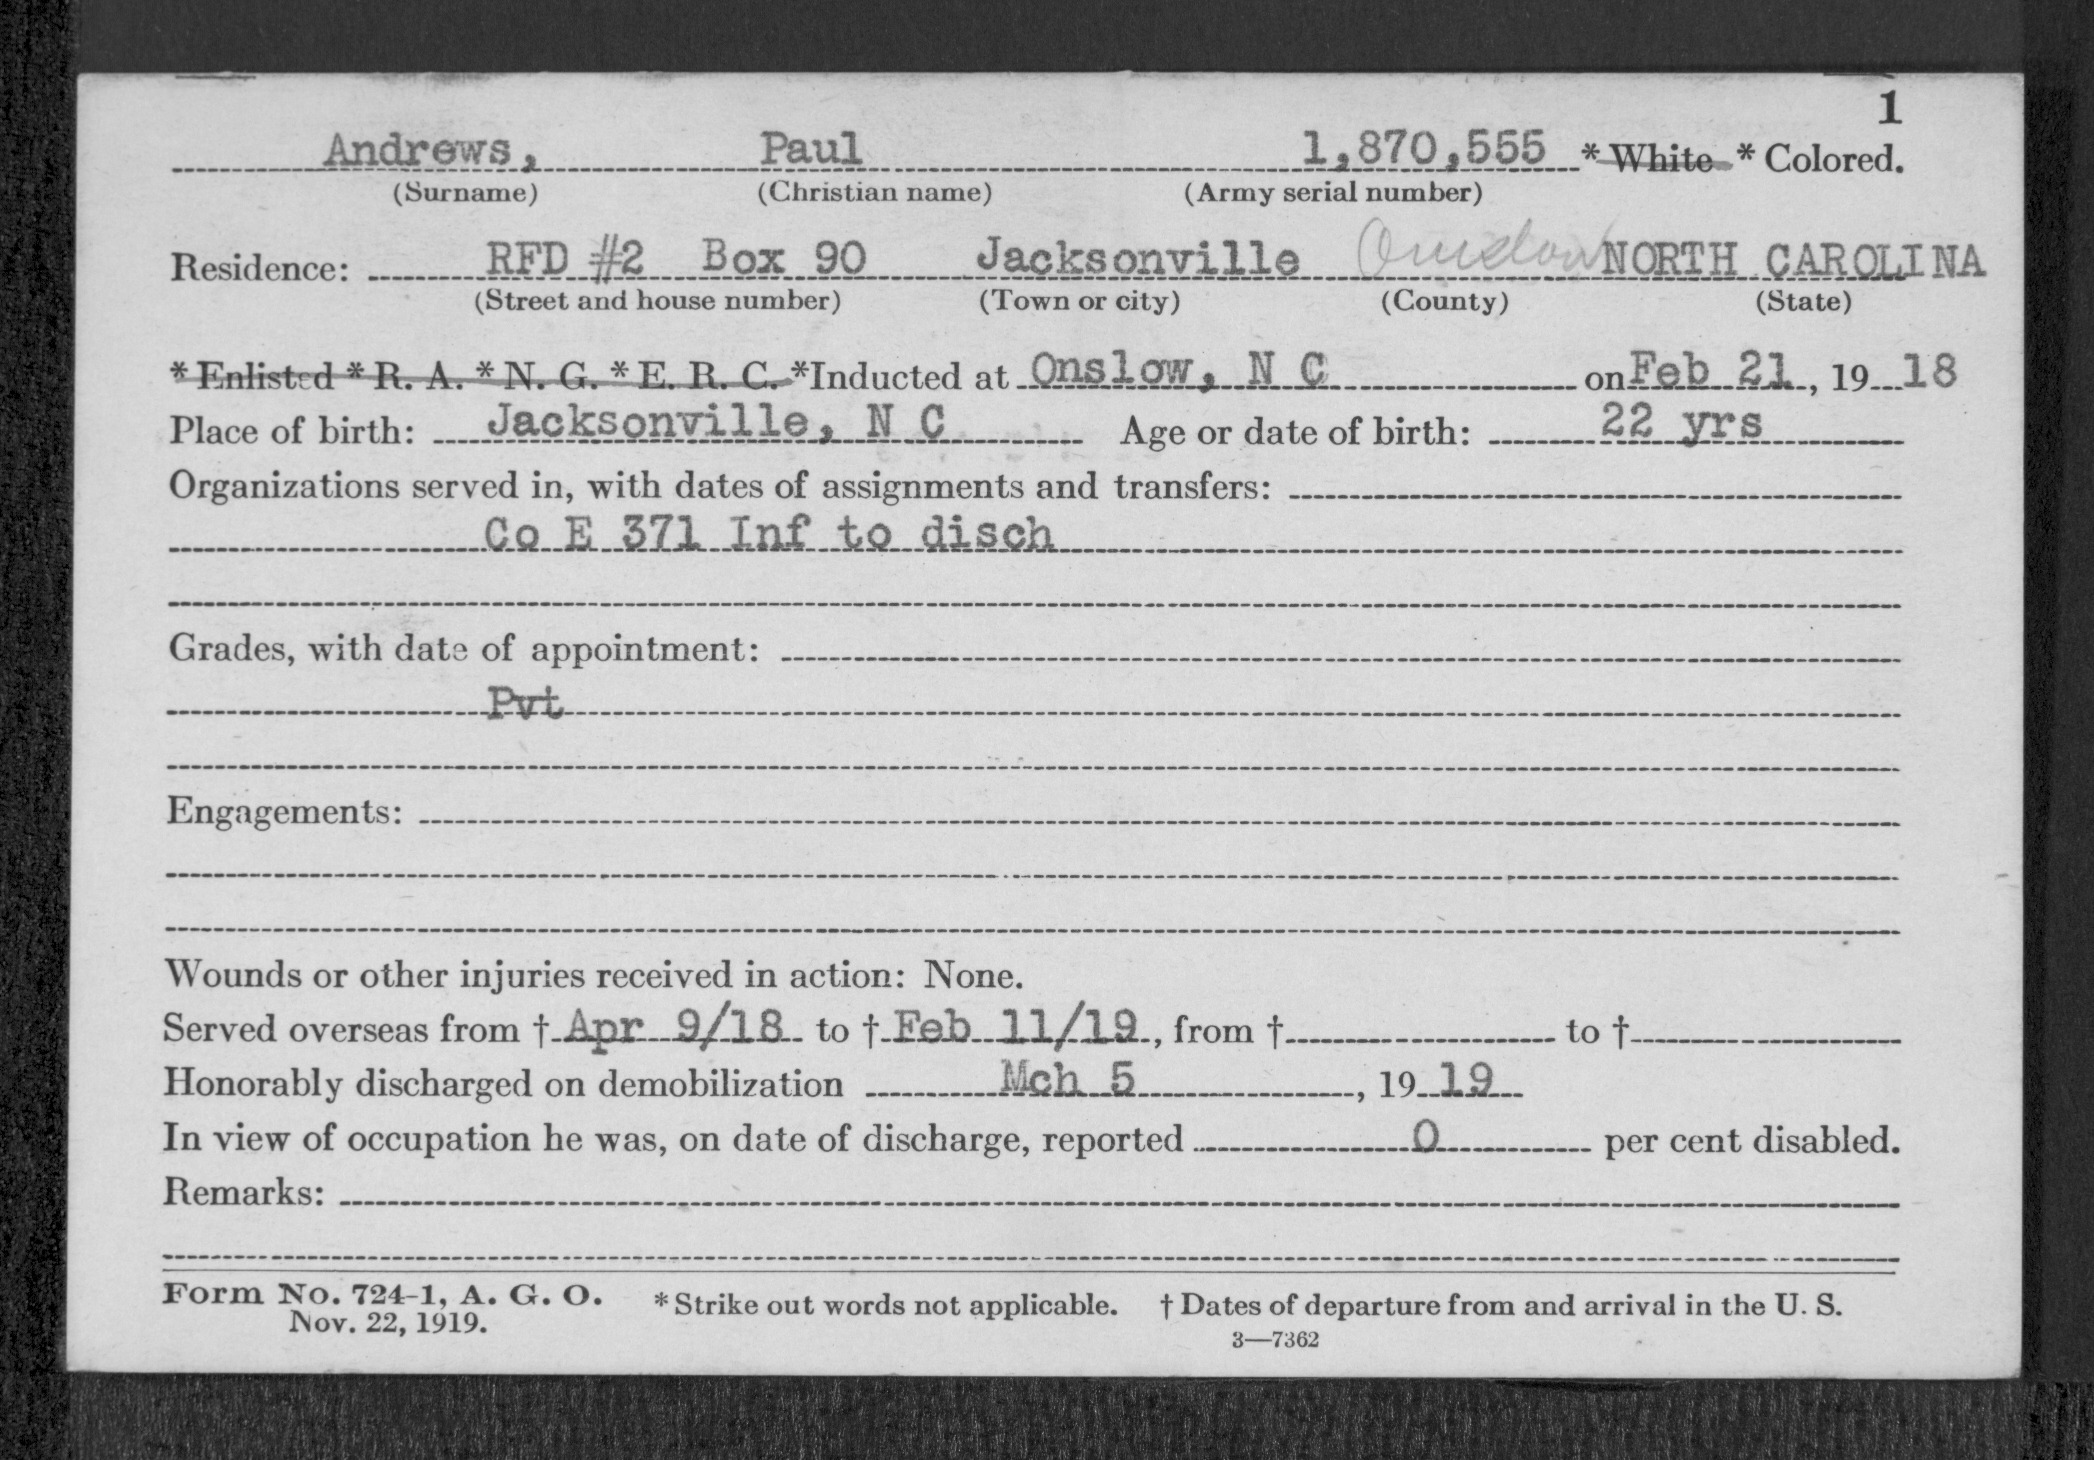 1
Andrews, Paul 1,870,555 * White * Colored.
(Surname) (Christian name) (Army serial number)
Residence: RFD #2 Box 90 Jacksonville Onslow NORTH CAROLINA
(Street and house number) (Town or city) (County) (State)
* Enlisted * R. A. * N. G. * E. R. C. *Inducted at Onslow, N C on Feb 21, 1918
Place of birth: Jacksonville, N C Age or date of birth: 22 yrs
Organizations served in, with dates of assignments and transfers:
Co E 371 Inf to disch
Grades, with date of appointment:
Pvt
Engagements:
Wounds or other injuries received in action: None.
Served overseas from † Apr 9/18 to † Feb 11/19, from † to †
Honorably discharged on demobilization Mch 5, 19 19
In view of occupation he was, on date of discharge, reported 0 per cent disabled.
Remarks:
Form No. 724-1, A. G. O. * Strike out words not applicable. † Dates of departure from and arrival in the U. S.
Nov. 22, 1919.
3—7362